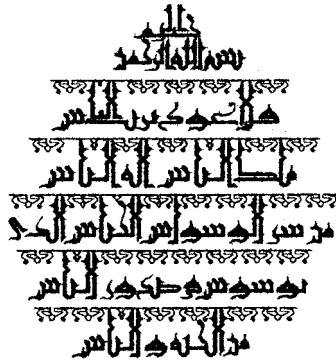 بسم الله الرحمن الرحيم
قل أعوذ برب الناس
ملك الناس إله الناس
من شر الوسواس الخناس الذي
يوسوس في صدور الناس
من الجنة و الناس